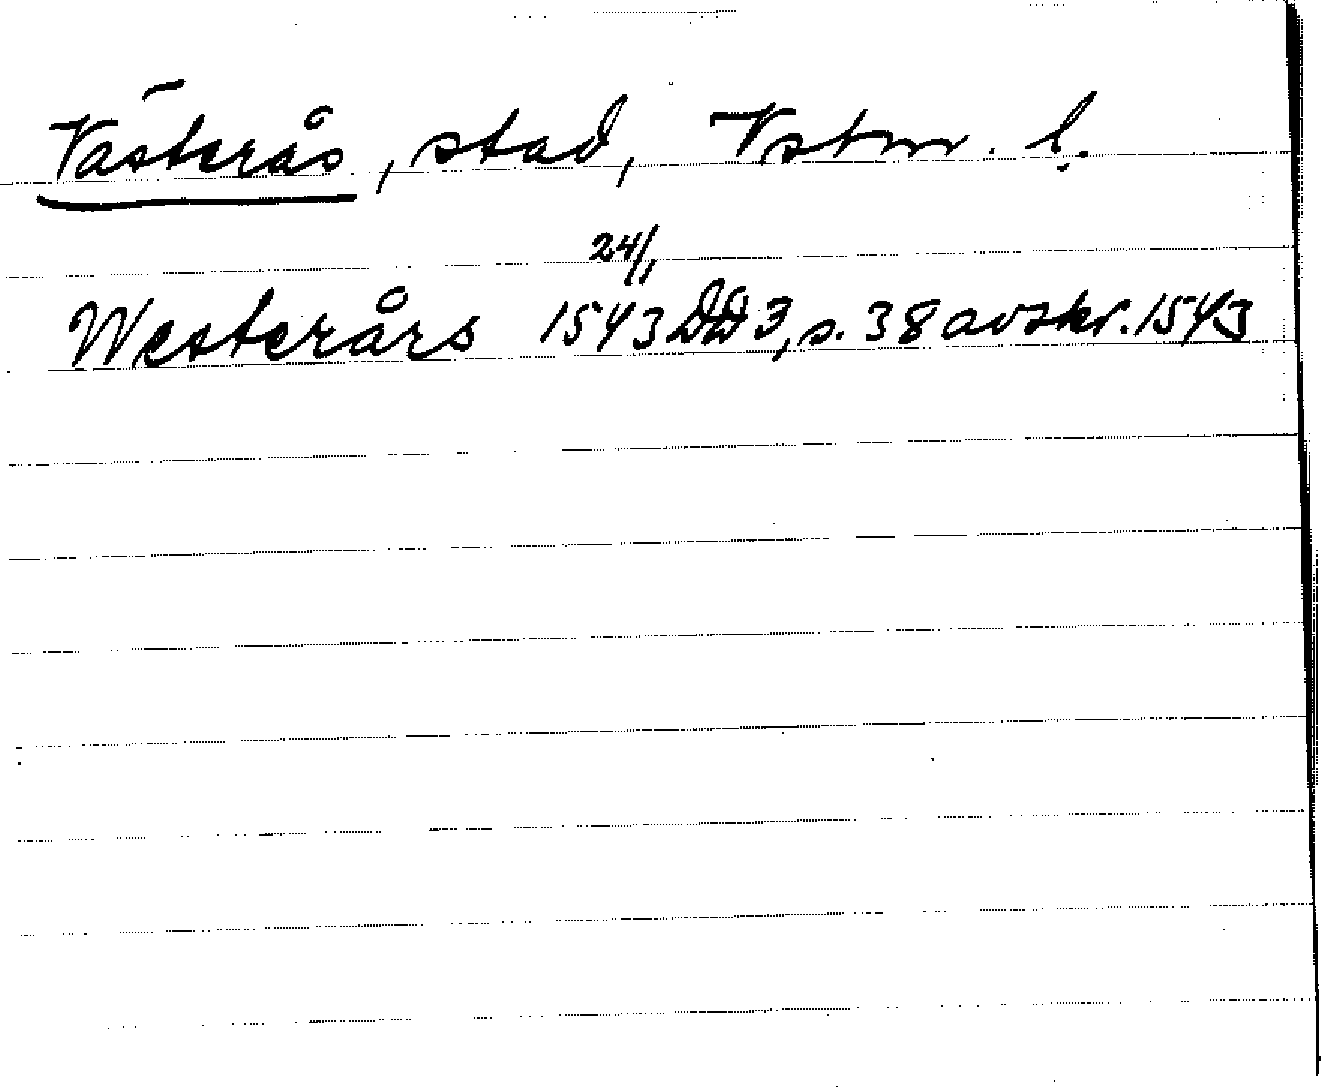 Västerås, stad, Vstm. l.
24/1
Westerårs 1543 DD 3, s. 38 avskr. 1543